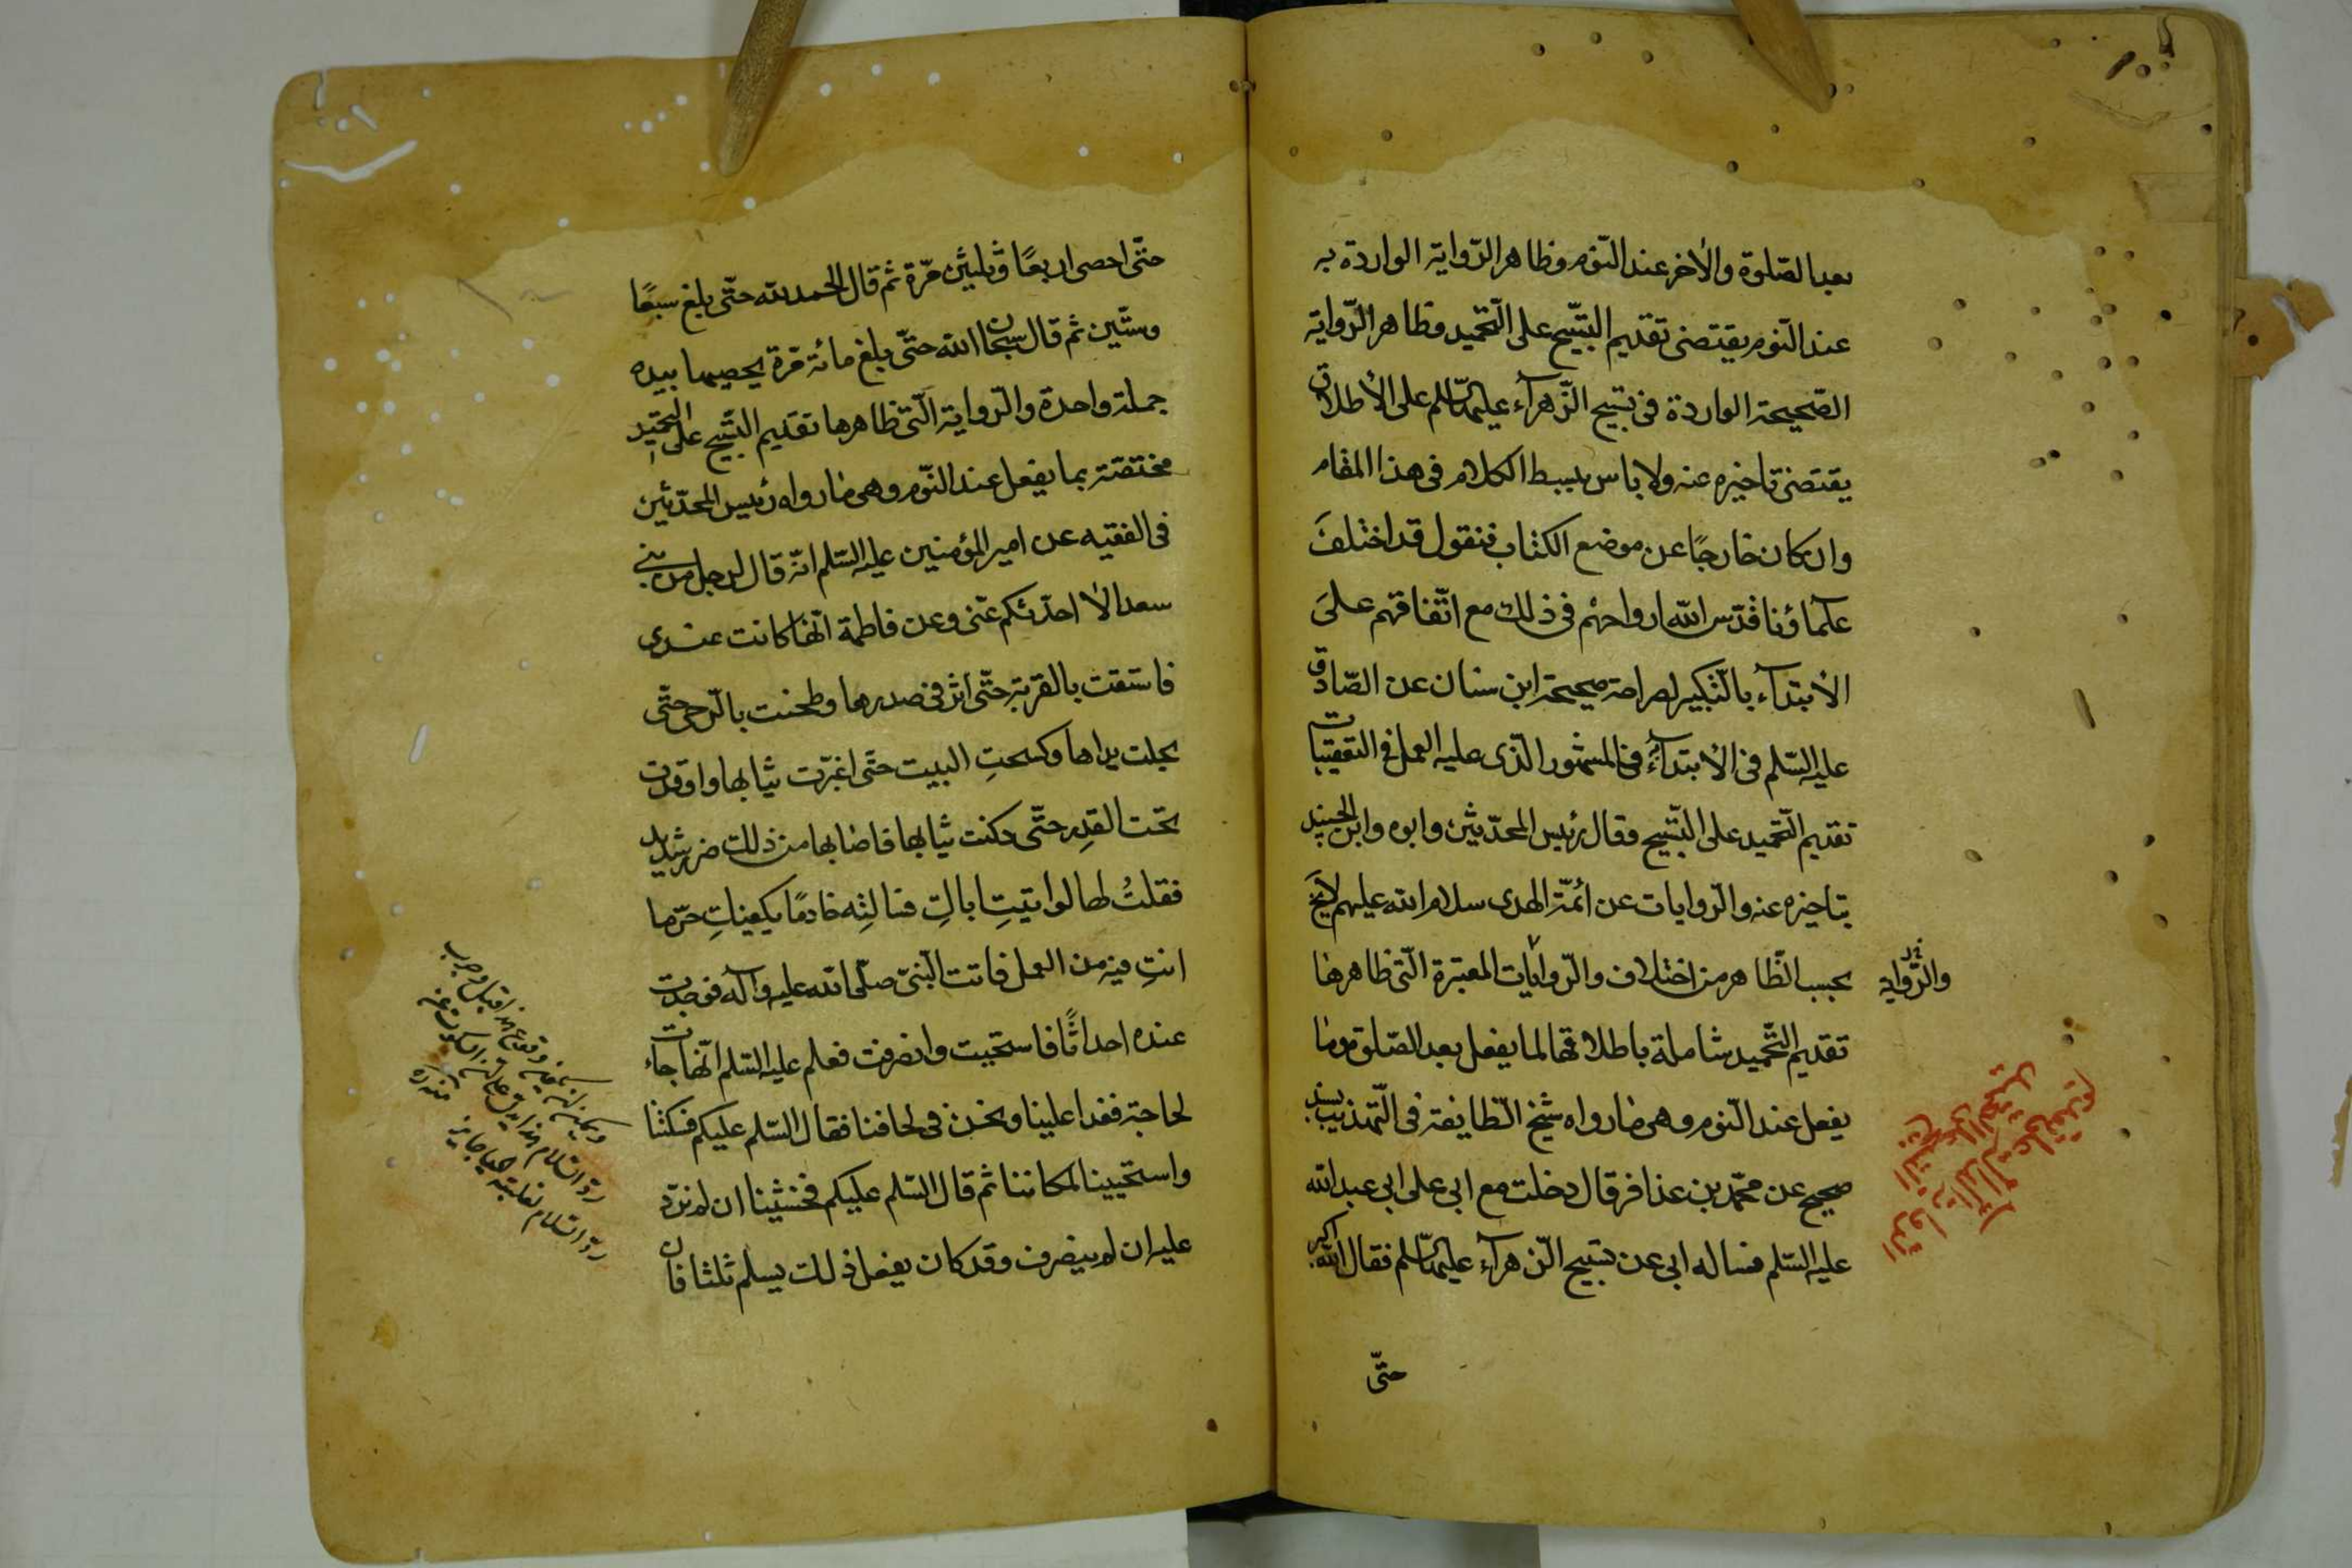 بعد الصّلوة والأخر عند النّوم وظاهر الرّواية الواردة به
عند النّوم يقتضى تقديم التّسبيح على التّحميد وظاهر الرّواية
الصّحيحة الواردة فى تسبيح الزّهرآء عليها السّلم على الأطلاق
يقتضى تاخيره عنه ولا باس ببسط الكلام فى هذا المقام
وان كان خارجًا عن موضع الكتاب فنقول قد اختلفَ
علمآؤنا قدّس الله ارواحهم فى ذلك مع اتّفاقهم علىَ
الأبتدآء بالتّكبير لصراحة صحيحة ابن سنان عن الصّادق
عليه السّلم فى الأبتدآء فى المشهور الّذى عليه العمل فى التعقيبات
تقديم التّحميد على التّسبيح وقال رئيس المحدّثين وابوه وابن الجنيد
بتاخيره عنه والرّوايات عن ائمّة الهدى سلام الله عليهم لا يخ
بحسب الظّاهر من اختلاف والرّوايات المعتبرة الّتى ظاهرها
تقديم التّحميد شاملة باطلاقها لما يفعل بعد الصّلوة وما
يفعل عند النّوم وهى ما رواه شيخ الطّايفة فى التّهذيب بسند
صحيح عن محمّد بن عذافر قال دخلت مع ابى على ابى عبد الله
عليه السّلم فساله ابى عن تسبيح الزّهرآء عليها السّلم فقال الله اكبر
حتّى
والرّواية
حتّى احصى اربعًا وثلثين مرّة ثم قال الحمد لله حتّى بلغ سبعًا
وستّين ثم قال سبحان الله حتّى بلغ مائة مرّة يحصيها بيده
جملة واحدة والرّواية الّتى ظاهرها تقديم التّسبيح على التّحميد
مختصّة بما يفعل عند النّوم وهى ما رواه رئيس المحدّثين
فى الفقيه عن امير المؤمنين عليه السّلم انّه قال لرجل من بنى
سعد الا احدّثكم عنّى وعن فاطمة انّها كانت عندى
فاستقت بالقربة حتّى اثر فى صدرها وطحنت بالرّحى حتّى
مجلت يداها وكسحتِ البيت حتى اغبرّت ثيابها واوقدت
تحت القدر حتّى دكنت ثيابها فاصابها من ذلك ضر شديد
فقلتُ لها لو اتيتِ اباكِ فسالتِه خادمًا يكفيكِ حرّ ما
انتِ فيه من العمل فاتت النّبىّ صلّى الله عليه وآله فوجدت
عنده احداثًا فاستحيت وانصرفت فعلم عليه السّلم انّها جاءت
لحاجة فغدا علينا ونحن فى لحافنا فقال السّلم عليكم فسكتنا
واستحيينا لمكاننا ثم قال السّلم عليكم فخشينا ان لم نردّ
عليه ان ينصرف وقد كان يفعل ذلك يسلم ثلثا فان